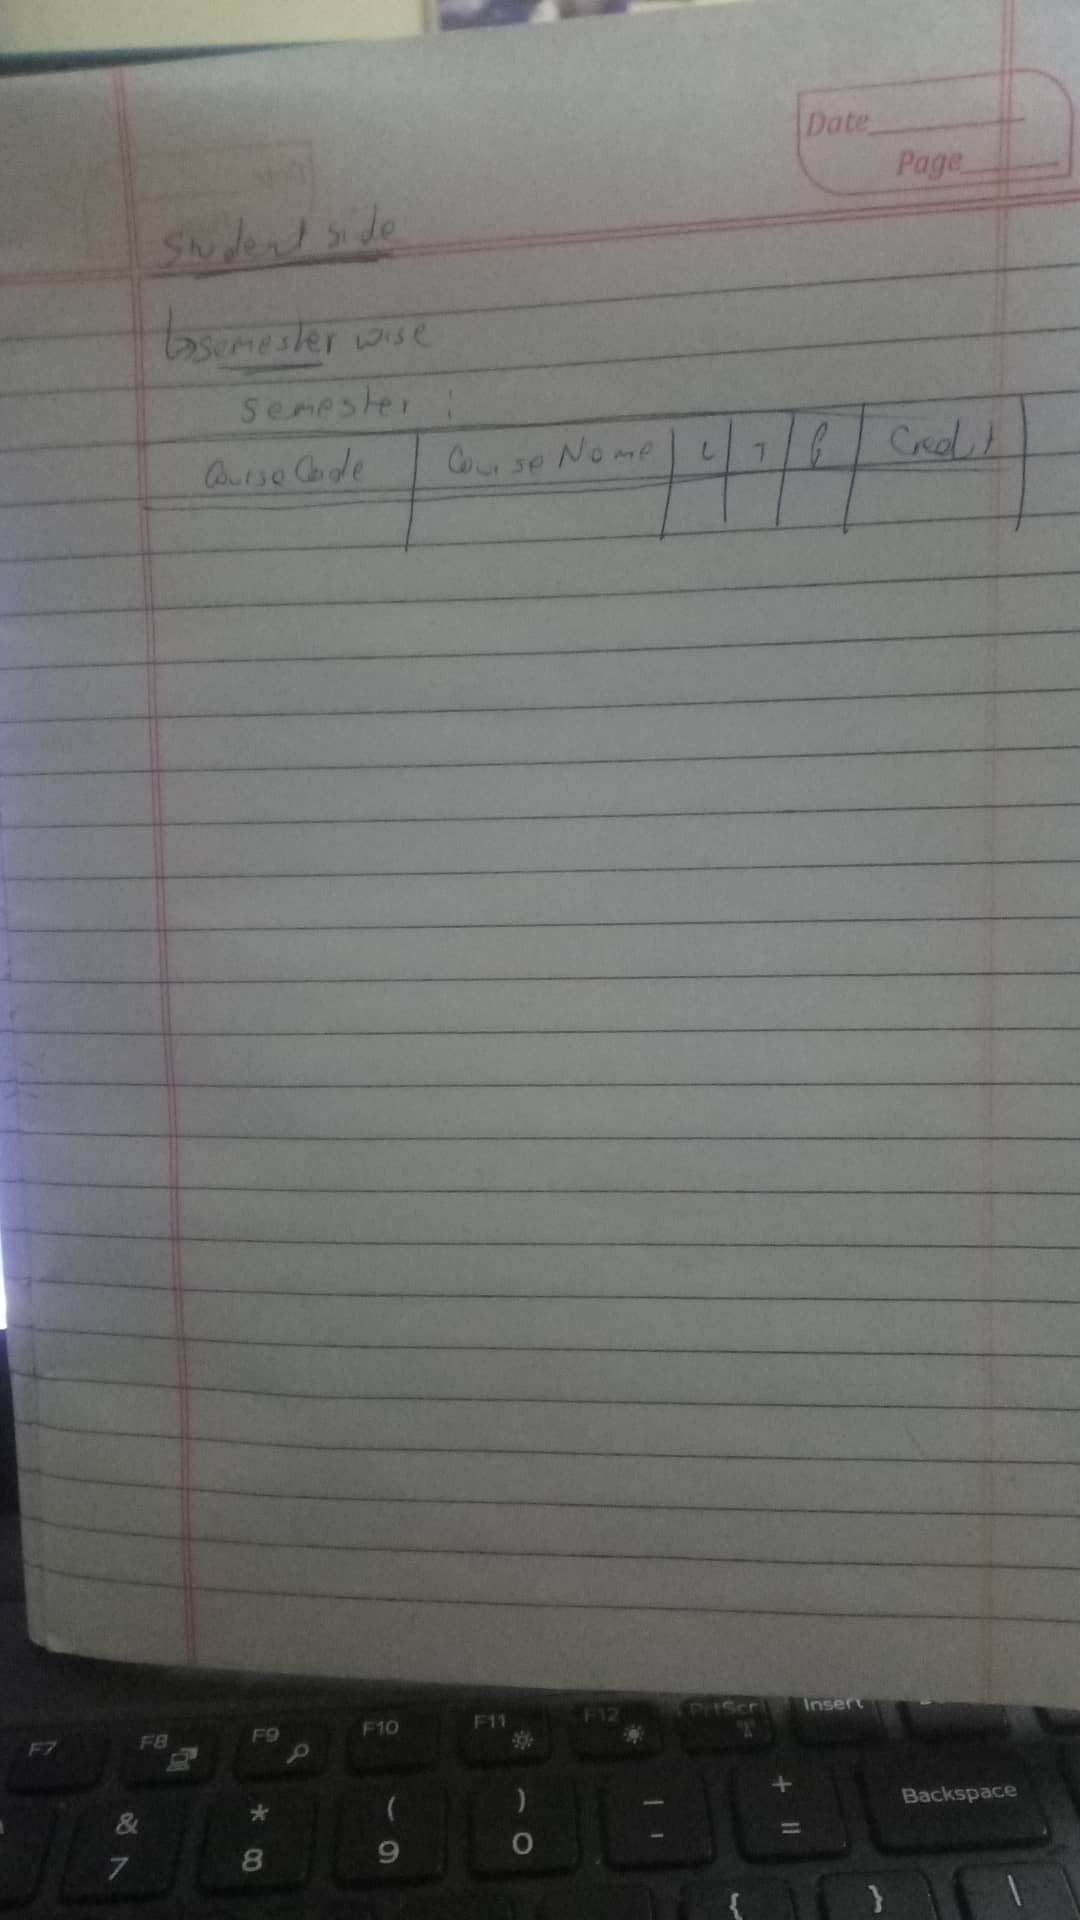 Date
Page
Student side
semester wise
semester :
Course Code Course Name L T P Credit
F7 F8 F9 F10 F11 F12 PrtScr Insert
& * ( ) _ + Backspace
7 8 9 0 - =
{ } |